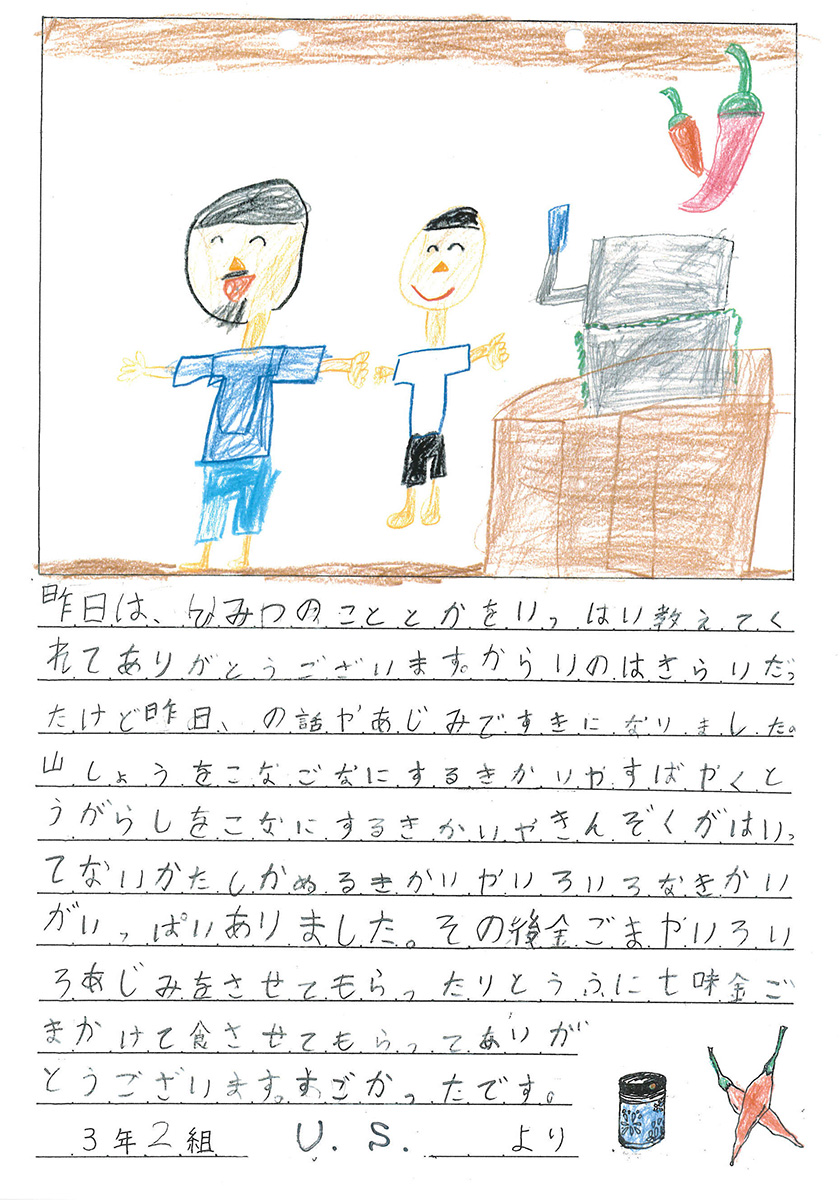 昨日は、ひみつのこととかをいっはい教えてく
れてありがとうございます。からいのはきらいだっ
たけど昨日、の話やあじみですきになりました。
山しょうをこなごなにするきかいやすばやくと
うがらしをこなにするきかいやきんぞくがはいっ
てないかたしかめるきかいやいろいろなきかい
がいっぱいありました。その後金ごまやいろい
ろあじみをさせてもらったりとうふに七味金ご
まかけて食させてもらってありが
とうございます。すごかったです。
3年2組 U.S. より